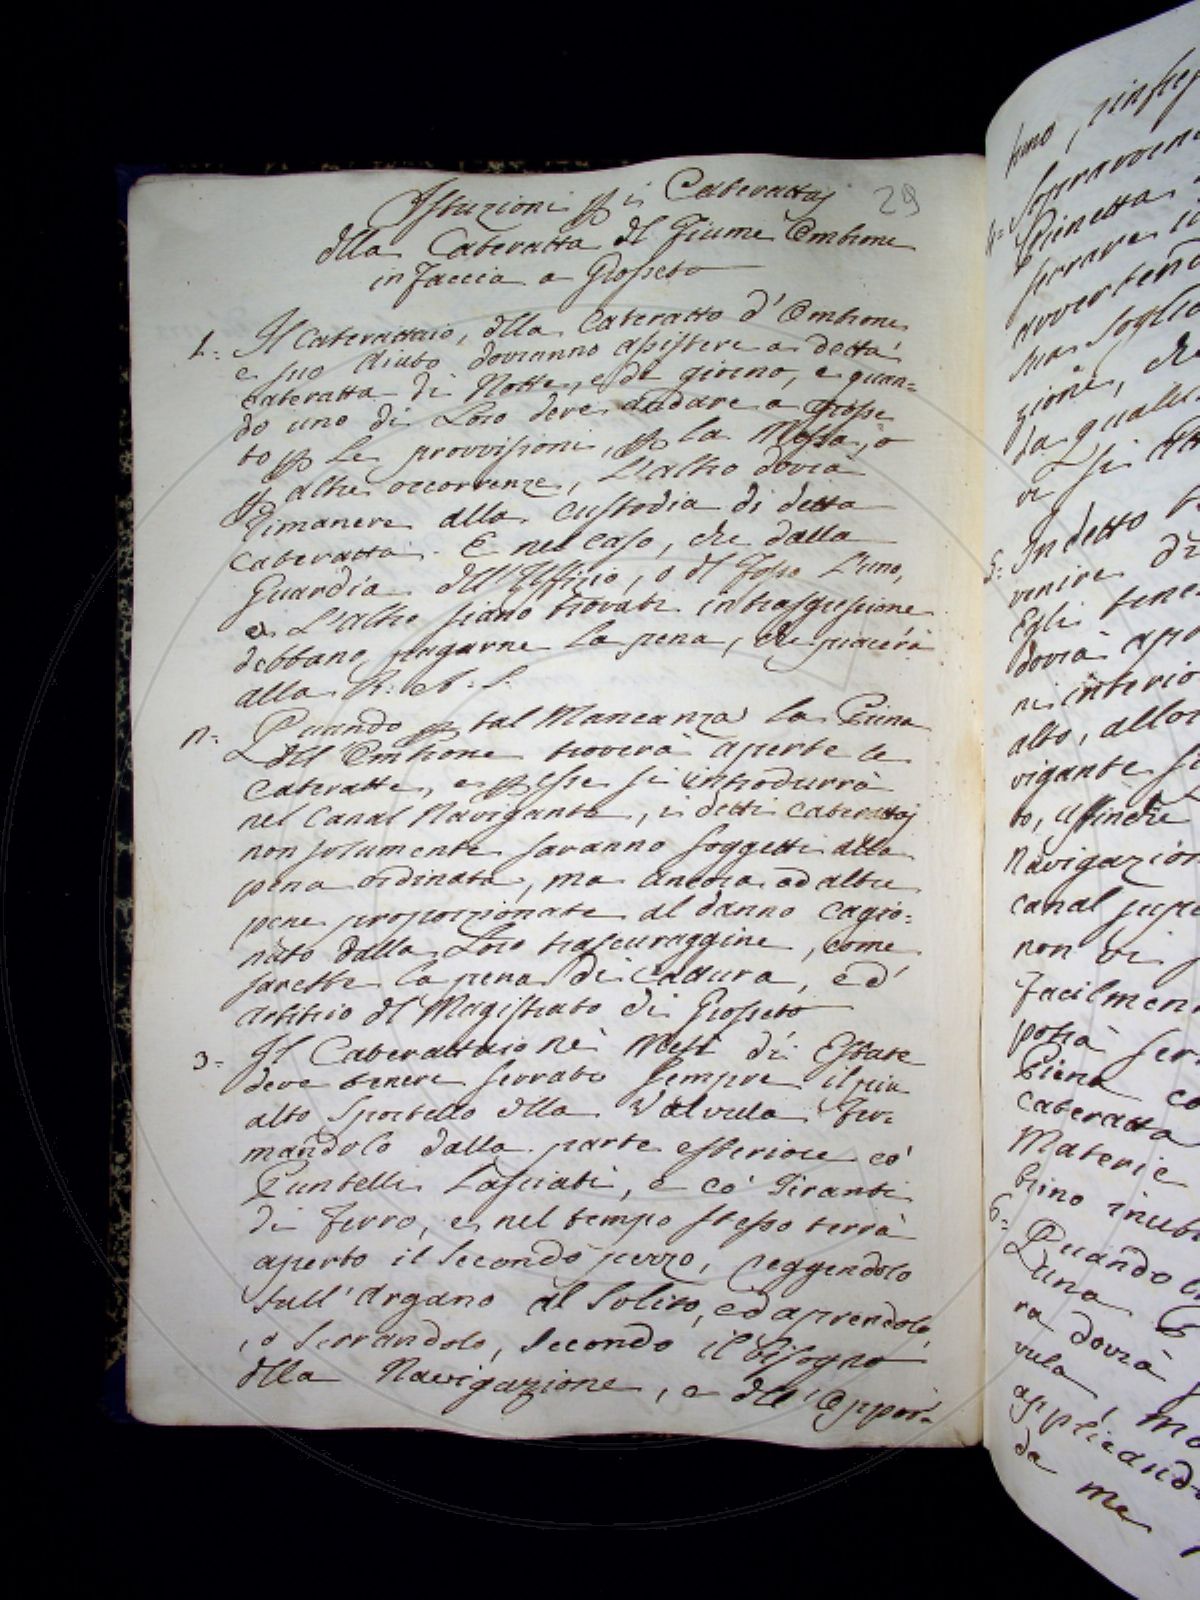 Istuzioni p i Caterattaj
29
dlla Cateratta dl Fiume Ombrone
in faccia a Grosseto
1. Il Caterattaio, dlla Cateratta d' Ombrone
e suo aiuto dovranno assistere a detta
cateratta di Notte, e di giorno, e quan=
do uno di Loro deve andare a Grosse
to p Le provvisioni, p la Messa, o
p altre occorrenze, L'altro dovrà
Rimanere alla custodia di detta
cateratta. E nel caso, che dalla
Guardia dll' Uffizio, o dl Fosso L'uno,
e L'altro siano trovati in trasgressione
debbano pagarne la pena, che piacerà
alla R: A: S.
2. Quando p tal Mancanza la Piena
dll' Ombrone troverà aperte le
cateratte, e p esse si introdurrà
nel Canal Navigante, i detti caterattaj
non solamente saranno soggetti alla
pena ordinata, ma ancora ad altre
pene proporzionate al danno cagio=
nato dalla Loro trascuraggine, come
sarebbe la pena di cattura, ed
arbitrio dl Magistrato di Grosseto
3. Il Caterattaio nè Mesi di Estate
deve tenere serrato sempre il più
alto Sportello dlla Valvula Fer=
mandolo dalla parte esteriore co'
Puntelli Lasciati, e co' Tiranti
di Ferro, e nel tempo stesso terrà
aperto il Secondo pezzo, reggendolo
sull' Argano al Solito, ed aprendolo,
o Serrandolo, Secondo il bisogno
dlla Navigazione, e dll' Oppor=
Sopravven
4.
Pienetta
serrare i
avverten
sua soglia
zione, ch
da qualu
5.
In detto
venire
Egli tene
dovrà ap
ni interio
alto, allo
vigante
to, affinche
Navigazion
canal supe
non vi
Facilmen
potrà ser
Piena co
cateratta
Materie
6.
Quando
Luna
ra dovrà
vula, mo
applicand
da me